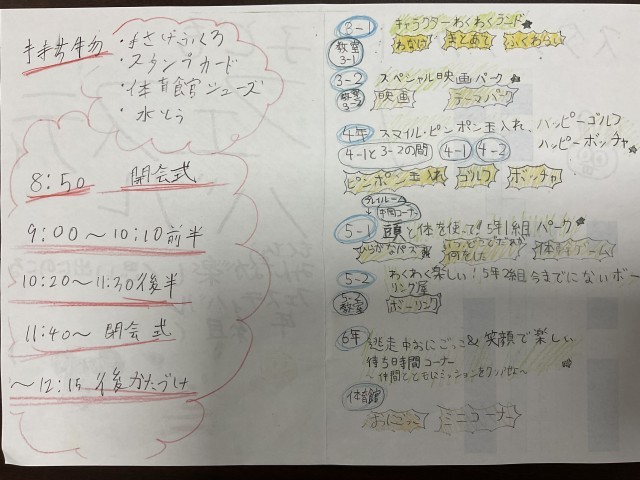 持ち物
・手さげぶくろ
・スタンプカード
・体育館シューズ
・水とう
8:50 開会式
9:00〜10:10 前半
10:20〜11:30 後半
11:40〜 閉会式
〜12:15 後かたづけ
3-1 キャラクターわくわくランド
教室 3-1 わなげ まとあて ふくわらい
3-2 スペシャル映画パーク
教室 3-2 映画 テーマパーク
4年 スマイル・ピンポン玉入れ、ハッピーゴルフ
4-1と3-2の間 4-1 4-2 ハッピーボッチャ
ピンポン玉入れ ゴルフ ボッチャ
プレイルーム
中間コーナー
5-1 頭と体を使って!5年1組パーク
ひらがなパズル いつどこでだれが何をした
5-2 わくわく楽しい!5年2組今までにないボー
リング屋
5-2 教室 ボーリング
6年 逃走中おにごっこ&笑顔で楽しい
待ち時間コーナー
〜仲間とともにミッションをクリアせよ〜
体育館
おにごっこ ミニコーナー